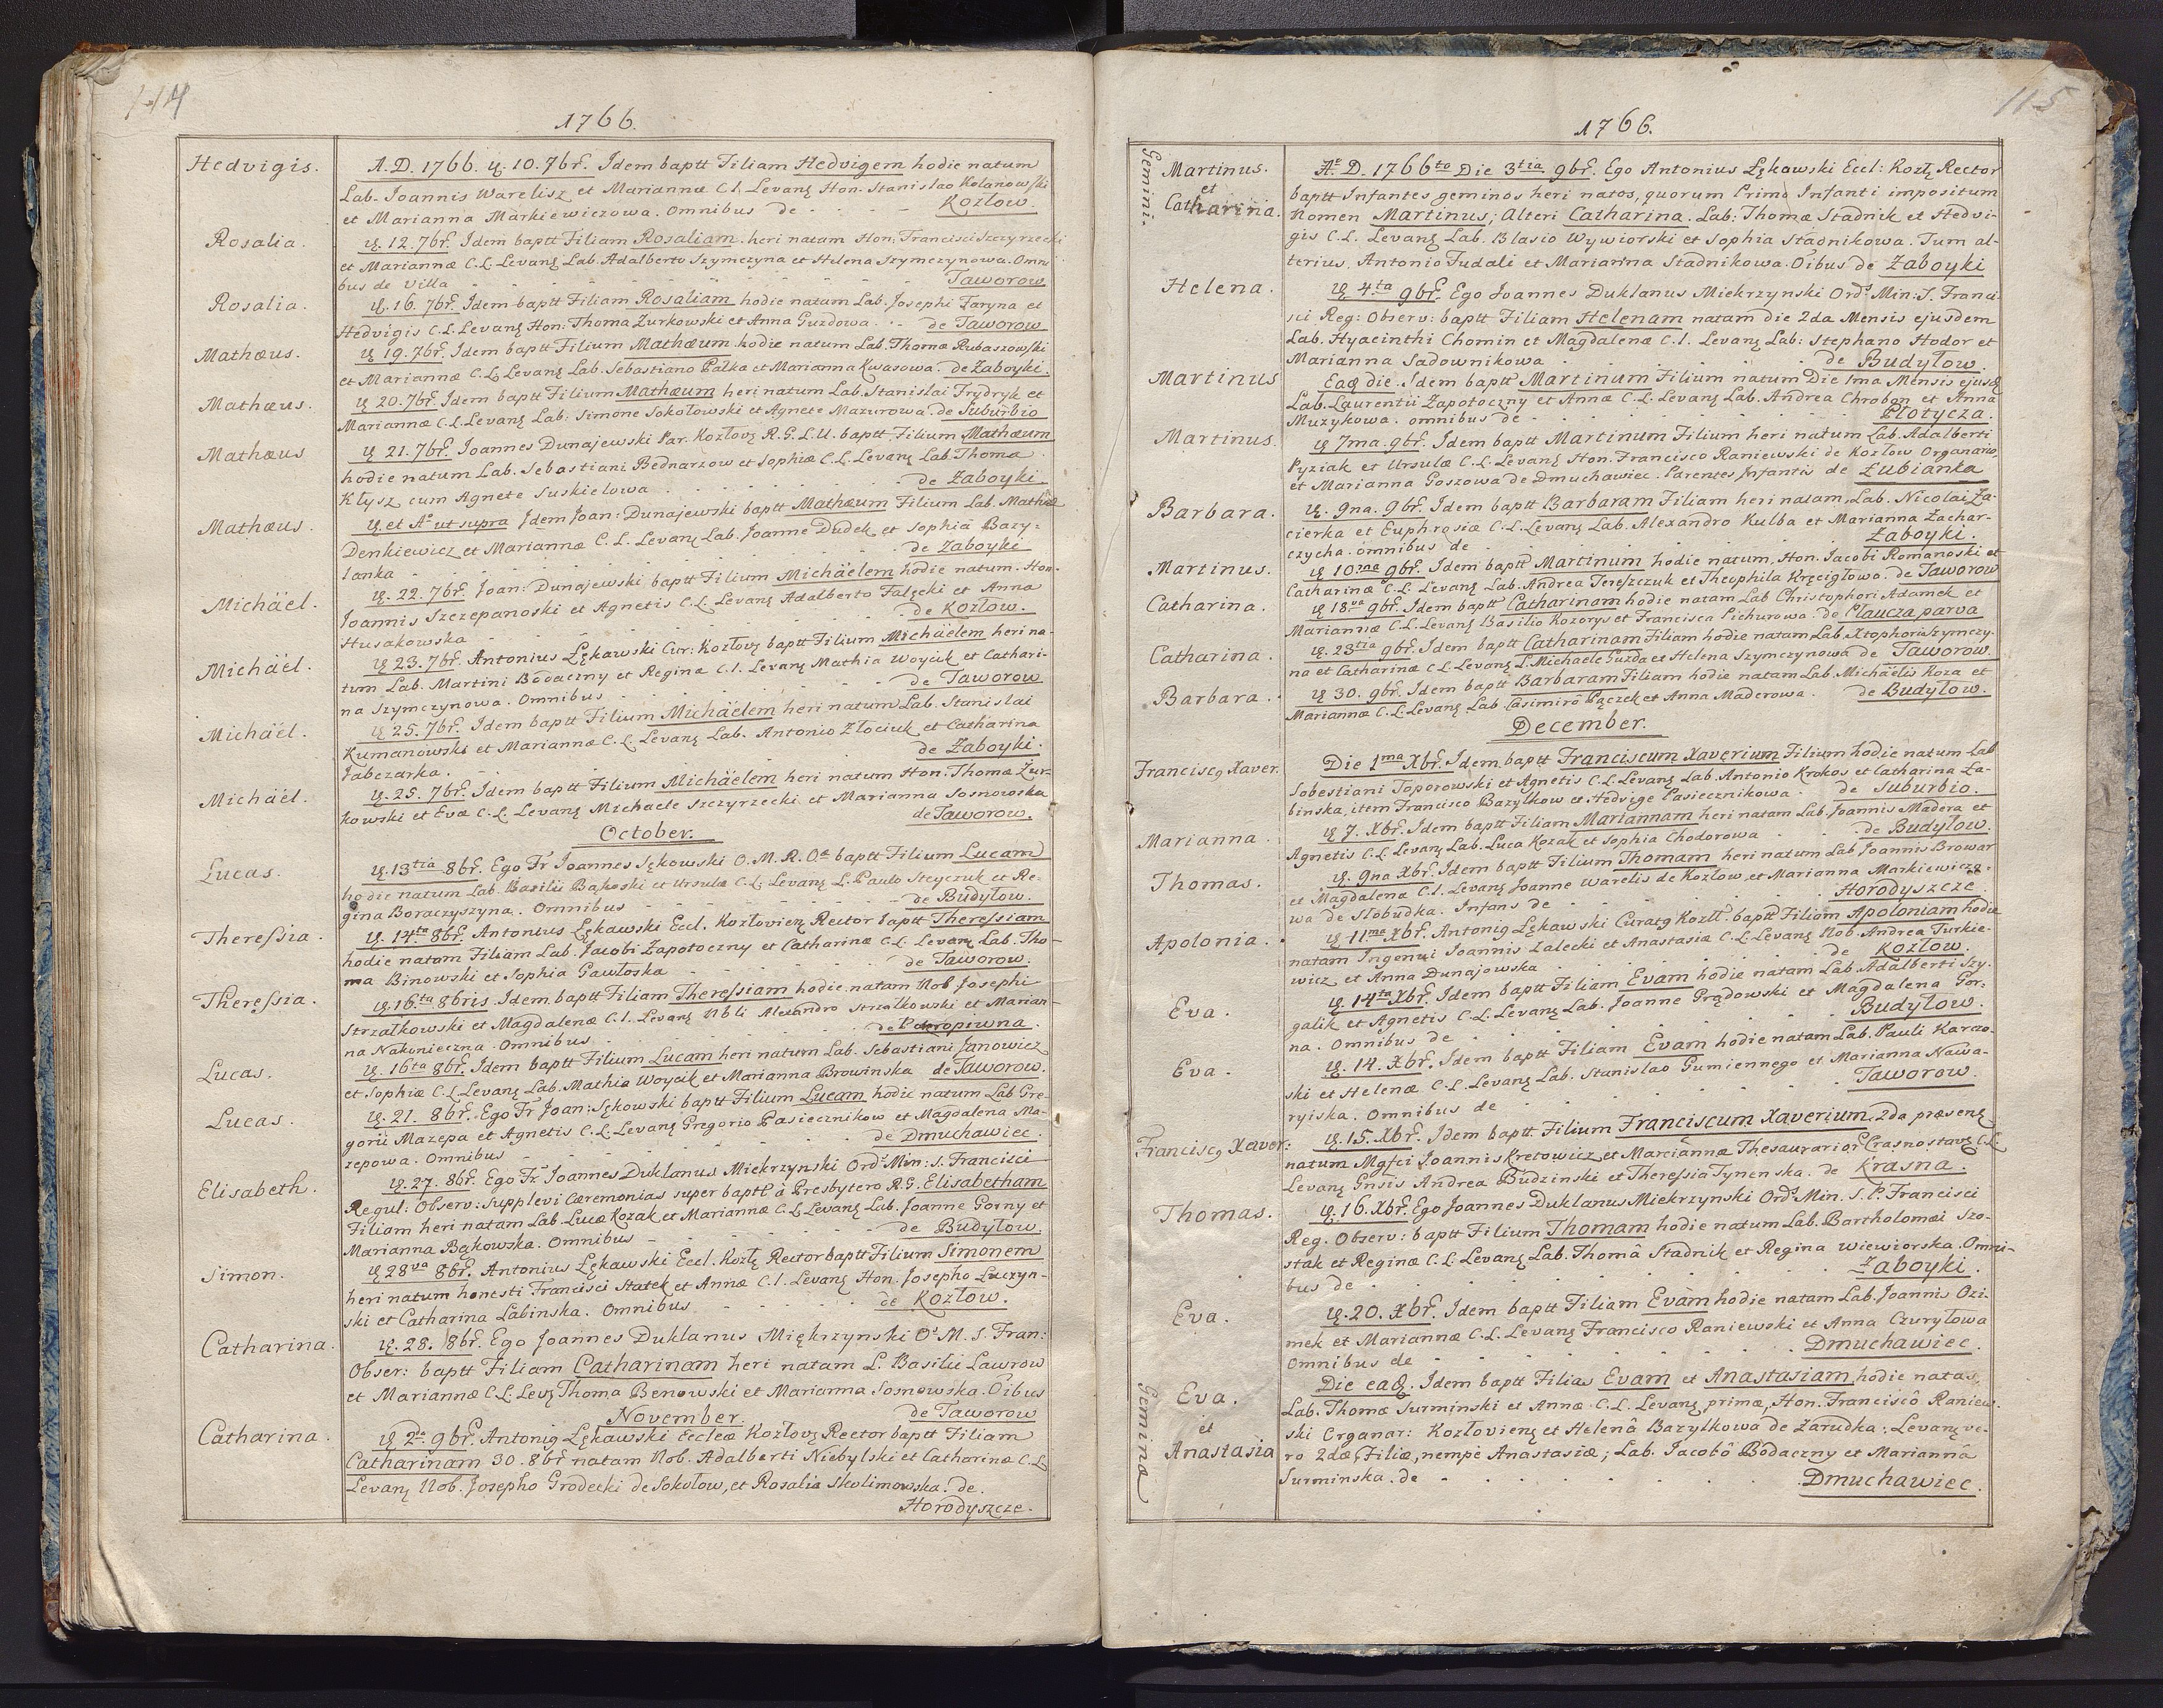 114
1766.
Hedvigis.
A.D. 1766. 10. 7br. Idem baptt Filiam Hedvigem hodie natum
Lab. Joannis Warelisz et Mariannæ C.L. Levang Hon. Stanislao Kolanowski
et Marianna Markiewiczowa. Omnibus de Kozlow.
Rosalia.
12. 7br. Idem baptt Filiam Rosaliam heri natam Hon. Francisci Szczyrzecki
et Mariannæ C.L. Levang Lab. Adalberto Szymczyna et Helena Szymczynowa. Omni
bus de Villa Taworow
Rosalia.
16. 7br. Idem baptt Filiam Rosaliam hodie natam Lab. Josephi Taryna et
Hedvigis C.L. Levang Hon: Thoma Zurkowski et Anna Guzdowa. de Taworow
Mathæus.
19. 7br. Idem baptt Filium Mathæum hodie natum Lab. Thomæ Rubaszowski
et Mariannæ C.L. Levang Lab. Sebastiano Palka et Marianna Kwasowa. de Zaboyki.
Mathæus.
20. 7br. Idem baptt Filium Mathæum heri natum Lab. Stanislai Frydryk et
Mariannæ C.L. Levang Lab: Simone Sokołowski et Agnete Mazurowa. de Suburbio
Mathæus
21. 7br. Joannes Dunajewski Par. Kozlovg R.G.L.U. baptt Filium Mathæum
hodie natum Lab. Sebastiani Bednarzow et Sophiæ C.L. Levang Lab. Thoma
Kłysz cum Agnete Suskielowa de Zaboyki.
Mathæus.
et Ao ut supra Idem Joan: Dunajewski baptt Mathæum Filium Lab. Mathiæ
Denkiewicz et Mariannæ C.L. Levang Lab. Joanne Dudek et Sophia Bazy=
lanka de Zaboyki
Michäel.
22. 7br. Joan: Dunajewski baptt Filium Michäelem hodie natum. Hon.
Joannis Szczepanoski et Agnetis C.L. Levang Adalberto Falęcki et Anna
Husakowska de Kozłow.
Michäel.
23. 7br. Antonius Łękawski Cur: Kozłovg baptt Filium Michäelem heri na-
tum Lab. Martini Bodaczny et Reginæ C.L. Levang Mathia Woycik et Cathari-
na Szymczynowa. Omnibus de Taworow
Michäel.
25. 7br. Idem baptt Filium Michäelem heri natum Lab. Stanislai
Kumanowski et Mariannæ C.L. Levang Lab. Antonio Złociuk et Catharina
Jabczarka. de Zaboyki.
Michäel.
25. 7br. Idem baptt Filium Michäelem heri natum Hon. Thomæ Zur-
kowski et Evæ C.L. Levang Michaele Szczyrzecki et Marianna Sosnowska
de Taworow.
October.
Lucas.
13tia 8br. Ego Fr Joannes Sękowski O.M.R.O. baptt Filium Lucam
hodie natum Lab. Basilii Bąkoski et Ursulæ C.L. Levang L. Paulo Steyczuk et Re-
gina Boraczyszyna. Omnibus de Budyłow.
Theressia.
14ta 8br. Antonius Łękawski Eccl. Kozłovieng Rector baptt Theressiam
hodie natam Filiam Lab. Jacobi Zapotoczny et Catharinæ C.L. Levang Lab. Tho-
ma Binowski et Sophia Gawłoska de Taworow.
Theressia.
16ta 8bris. Idem baptt Filiam Theressiam hodie natam Nob Josephi
Strzałkowski et Magdalenæ C.L. Levang Nbli Alexandro Strzalkowski et Marian-
na Nakonieczna. Omnibus de Pokropiwna.
Lucas.
16ta 8br. Idem baptt Filium Lucam heri natum Lab. Sebastiani Janowicz
et Sophiæ C.L. Levang Lab. Mathia Woycik et Marianna Browinska de Taworow.
Lucas.
21. 8br. Ego Fr Joan: Sękowski baptt Filium Lucam hodie natum Lab Gre-
gorii Mazepa et Agnetis C.L. Levang Gregorio Pasiecznikow et Magdalena Ma-
zepowa. Omnibus de Dmuchawiec.
Elisabeth.
27. 8br. Ego Fr Joannes Duklanus Miekrzynski Ord. Min: S. Francisci
Regul: Observ: supplevi Cæremonias super baptt à Presbytero R.G. Elisabetham
Filiam heri natam Lab. Lucæ Kozak et Mariannæ C.L. Levang Lab. Joanne Gorny et
Marianna Bąkowska. Omnibus de Budyłow.
Simon.
28va 8br. Antonius Łękawski Eccl. Kozłg Rector baptt Filium Simonem
heri natum honesti Francisci Statek et Annæ C.L. Levang Hon. Josepho Luczyn-
ski et Catharina Labinska. Omnibus de Kozłow.
Catharina.
28. 8br. Ego Joannes Duklanus Miękrzynski O.M.S. Fran:
Obser: baptt Filiam Catharinam heri natam L. Basilii Lawrow
et Mariannæ C.L. Levg Thoma Benowski et Marianna Sosnowska. Oibus
November. de Taworow
Catharina.
2da 9br. Antonig Łękawski Eccleæ Kozłovg Rector baptt Filiam
Catharinam 30. 8br natam Nob. Adalberti Niebylski et Catharinæ C.L.
Levang Nob. Josepho Grodecki de Sokołow, et Rosalia Skolimowska. de.
Horodyszcze.
115
1766.
Gemini.
Martinus.
et
Catharina.
Ao D. 1766to Die 3tia 9br. Ego Antonius Łękawski Eccl: Kozłg Rector
baptt Infantes geminos heri natos, quorum Primo Infanti impositum
Nomen Martinus; Alteri Catharina. Lab: Thomæ Stadnik et Hedvi-
gis C.L. Levang Lab. Blasio Wywiorski et Sophia Stadnikowa. Tum al-
terius, Antonio Fudali et Marianna Stadnikowa. Oibus de Zaboyki
Helena.
4ta 9br. Ego Joannes Duklanus Miekrzynski Ord. Min: S. Franci-
sci Reg: Observ: baptt Filiam Helenam natam die 2da Mensis ejusdem
Lab. Hyacinthi Chomin et Magdalenæ C.L. Levang Lab: Stephano Hodor et
Marianna Sadownikowa de Budyłow.
Martinus
Eadg die. Idem baptt Martinum Filium natum Die 1ma Mensis ejusdg
Lab. Laurentii Zapotoczny et Annæ C.L. Levang Lab. Andrea Chroban et Anna
Muzykowa. omnibus de Płotycza.
Martinus.
7ma. 9br. Idem baptt Martinum Filium heri natum Lab. Adalberti
Pyziak et Ursulæ C.L. Levang Hon. Francisco Raniewski de Kozłow Organario,
et Marianna Goszowa de Dmuchawiec. Parentes Infantis de Łubianka
Barbara.
9na. 9br. Idem baptt Barbaram Filiam heri natam, Lab. Nicolai Za-
cierka et Euphrosiæ C.L. Levang Lab. Alexandro Kulba et Marianna Zachar-
czycha. omnibus de Zaboyki.
Martinus.
10ma 9br. Idem baptt Martinum hodie natum, Hon. Jacobi Romanoski et
Catharinæ C.L. Levang Lab. Andrea Tereszczuk et Theophila Kręcigłowo. de Taworow
Catharina.
18va 9br. Idem baptt Catharinam hodie natam Lab Christophori Adamek et
Mariannæ C.L. Levang Basilio Kozorys et Francisca Pichurowa. de Płaucza parva
Catharina.
23tia 9br. Idem baptt Catharinam Filiam hodie natam Lab. Xtophori Szymczy-
na et Catharinæ C.L. Levang L. Michaele Guzda et Helena Szymczynowa de Taworow.
Barbara.
30. 9br. Idem baptt Barbaram Filiam hodie natam Lab. Michäelis Koza et
Mariannæ C.L. Levang Lab Casimirô Pączek et Anna Maderowa. de Budyłow.
December.
Franciscg Xaver.
Die 1ma Xbr. Idem baptt Franciscum Xaverium Filium hodie natum Lab
Sobestiani Toporowski et Agnetis C.L. Levang Lab. Antonio Krokos et Catharina Ła-
binska, item Francisco Bazylkow et Hedvige Pasiecznikowa. de Suburbio.
Marianna.
7. Xbr. Idem baptt Filiam Mariannam heri natam Lab. Joannis Madera et
Agnetis C.L. Levang Lab. Luca Kozak et Sophia Chodorowa de Budyłow.
Thomas.
9na Xbr. Idem baptt Filium Thomam heri natum Lab Joannis Browar
et Magdalena C.L. Levang Joanne Warelis de Kozłow, et Marianna Markiewiczo-
wa de Słobudka. Infans de Horodyszcze
Apolonia.
11ma Xbr. Antonig Łękawski Curatg Kozłt. baptt Filiam Apoloniam hodie
natam Ingenui Joannis Zalecki et Anastasiæ C.L. Levang Nob. Andrea Turkie-
wicz et Anna Dunajowska de Kozłow.
Eva.
14ta Xbr. Idem baptt Filiam Evam hodie natam Lab. Adalberti Szy-
galik et Agnetis C.L. Levang Lab. Joanne Grądowski et Magdalena Gor-
na. Omnibus de Budyłow.
Eva.
14. Xbr. Idem baptt Filiam Evam hodie natam Lab. Pauli Karao-
ski et Helenæ C.L. Levang Lab. Stanislao Gumiennego et Marianna Nawa-
ryiska. Omnibus de Taworow.
Franciscg Xaver:
15. Xbr. Idem baptt Filium Franciscum Xaverium 2da præseng
natum Mgfci Joannis Kretowicz et Mariannæ Thesaurarior Crasnostavg C.L.
Levang Gnsis Andrea Budzinski et Theressia Tynenska. de Krasna.
Thomas.
16. Xbr. Ego Joannes Duklanus Miekrzynski Ord. Min. S.P. Francisci
Reg. Observ: baptt Filium Thomam hodie natum Lab. Bartholomæi Szo-
stak et Reginæ C.L. Levang Lab. Thomâ Stadnik et Regina Wiewiorska. Omni-
bus de Zaboyki.
Eva.
20. Xbr. Idem baptt Filiam Evam hodie natam Lab. Joannis Ozi-
mek et Mariannæ C.L. Levang Francisco Raniewski et Anna Czuryłowa
Omnibus de Dmuchawiec.
Geminæ
Eva.
et
Anastasia
Die eadg. Idem baptt Filias Evam et Anastasiam hodie natas,
Lab. Thomæ Surminski et Annæ C.L. Levang primæ, Hon. Franciscô Raniew-
ski Organar: Kozłovieng et Helenâ Bazylkowa de Zarudka: Levang ve-
ro 2dæ Filiæ, nempe Anastasiæ; Lab. Jacobô Bodaczny et Mariannâ
Surminska. de Dmuchawiec.